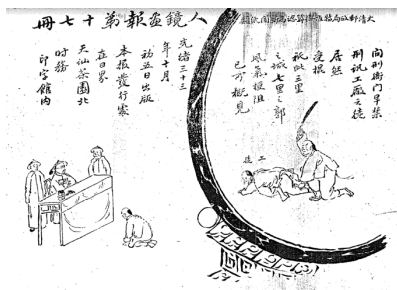 人鏡畫報第十七冊
大清郵政局特准掛號認為新聞紙類
問刑衙門早禁
刑訊工徒
居然
受棍
祇此三里
之城七里之郭
風氣梗阻
已可概見
工徒
光緒三十三
年十月
初五日出版
本報發行處
在日界
天仙茶園北
時務
印字館內